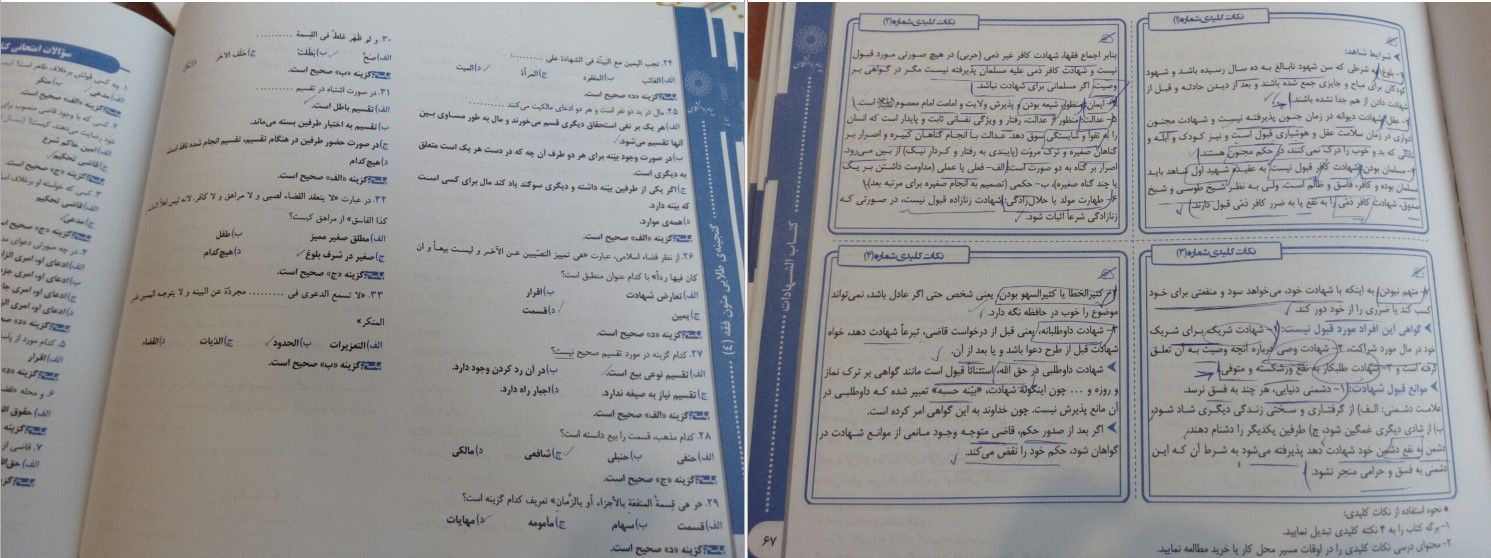 سؤالات امتحانی
۲۴. تجب الیمین مع البیّنة فی الشهادة علی .........
الف) الغائب ب) المفقود ج) المرأة د) المیت
پاسخ: گزینه «د» صحیح است.
۲۵. مال در ید دو نفر است و هر دو ادعای مالکیت می‌کنند .........
الف) هر یک بر نفی استحقاق دیگری قسم می‌خورند و مال به طور مساوی بین
آنها تقسیم می‌شود.
ب) در صورت وجود بینه برای هر دو طرف آن چه که در دست هر یک است متعلق
به دیگری است.
ج) اگر یکی از طرفین بینه داشته و دیگری سوگند یاد کند مال برای کسی است
که بینه دارد.
د) همه‌ی موارد.
پاسخ: گزینه «الف» صحیح است.
۲۶. از نظر قضاء اسلامی، عبارت «هی تمییز النصیبین عن الآخر و لیست بیعاً و ان
کان فیها رد» با کدام عنوان منطبق است؟
الف) تعارض شهادت ب) اقرار
ج) یمین د) قسمت
پاسخ: گزینه «د» صحیح است.
۲۷. کدام گزینه در مورد تقسیم صحیح نیست؟
الف) تقسیم نوعی بیع است. ب) در آن رد کردن وجود دارد.
ج) تقسیم نیاز به صیغه ندارد. د) اجبار راه دارد.
پاسخ: گزینه «الف» صحیح است.
۲۸. کدام مذهب، قسمت را بیع دانسته است؟
الف) حنفی ب) حنبلی ج) شافعی د) مالکی
پاسخ: گزینه «ج» صحیح است.
۲۹. «و هی قسمةُ المنفعَة بالأجزاء أو بالزَّمان» تعریف کدام گزینه است؟
الف) قسمت ب) سهام ج) مأمومه د) مهایات
پاسخ: گزینه «د» صحیح است.
۳۰. و لو ظَهَر غلطٌ فی القِسمة .........
الف) صَحَّ ب) بَطَلَت ج) حَلَف الآخر
پاسخ: گزینه «ب» صحیح است.
۳۱. در صورت اشتباه در تقسیم .........
الف) تقسیم باطل است.
ب) تقسیم به اختیار طرفین بسته می‌ماند.
ج) در صورت حضور طرفین در هنگام تقسیم، تقسیم انجام شده نافذ است.
د) هیچ‌کدام
پاسخ: گزینه «الف» صحیح است.
۳۲. در عبارت «لا ینعقد القضاء لصبی و لا مراهق و لا کافر، لانه لیس اهلاً
کذا الفاسق» از مراهق کیست؟
الف) مطلق صغیر ممیز ب) طفل
ج) صغیر در شرف بلوغ د) هیچ‌کدام
پاسخ: گزینه «ج» صحیح است.
۳۳. «لا تسمع الدعوی فی ......... مجردة عن البینه و لا یتوجه الیمین علی
المنکر»
الف) التعزیرات ب) الحدود ج) الدیات د) القضاء
پاسخ: گزینه «ب» صحیح است.
گنجینه‌ی طلایی متون فقه (۴)
کتاب الشهادات
نکات کلیدی شماره (۱)
شرایط شاهد:
۱- بلوغ: به شرطی که سن شهود نابالغ به ده سال رسیده باشد و شهود
کودکان برای مباح و جایزی جمع شده باشند و بعد از دیدن حادثه و قبل از
شهادت دادن از هم جدا نشده باشند.
۲- عقل: شهادت دیوانه در زمان جنون پذیرفته نیست و شهادت مجنون
ادواری در زمان سلامت عقل و هوشیاری قبول است و نیز کودک و ابله و
نادانی که بد و خوب را درک نمی‌کنند، در حکم مجنون هستند.
۳- مسلمان بودن: شهادت کافر قبول نیست. به عقیده شهید اول شاهد باید
مسلمان بوده و کافر، فاسق و ظالم است. ولی به نظر شیخ طوسی و شیخ
صدوق، شهادت کافر ذمّی را به نفع یا به ضرر کافر ذمّی قبول دارند.
نکات کلیدی شماره (۲)
بنابر اجماع فقها، شهادت کافر غیر ذمی (حربی) در هیچ صورتی مورد قبول
نیست و شهادت کافر ذمی علیه مسلمان پذیرفته نیست مگر در گواهی بر
وصیت، اگر مسلمانی برای شهادت نباشد.
۴- ایمان: منظور شیعه بودن و پذیرش ولایت و امامت امام معصوم است.
۵- عدالت: منظور از عدالت، رفتار و ویژگی نفسانی ثابت و پایدار است که انسان
را به تقوا و شایستگی سوق دهد. عدالت با انجام گناهان کبیره و اصرار بر
گناهان صغیره و ترک مروّت (پایبندی به رفتار و کردار نیک) از بین می‌رود.
اصرار بر گناه به دو صورت است: الف- فعلی یا عملی (مداومت داشتن بر یک
یا چند گناه صغیره)، ب- حکمی (تصمیم به انجام صغیره برای مرتبه بعد).
۶- طهارت مولد یا حلال‌زادگی: شهادت زنازاده قبول نیست، در صورتی که
زنازادگی شرعاً اثبات شود.
نکات کلیدی شماره (۳)
متهم نبودن: به اینکه با شهادت خود، می‌خواهد سود و منفعتی برای خود
کسب کند یا ضرری را از خود دور کند.
گواهی این افراد مورد قبول نیست: ۱- شهادت شریک برای شریک
خود در مال مورد شراکت، ۲- شهادت وصی درباره آنچه وصیت به آن تعلق
گرفته است و ۳- شهادت طلبکار به نفع ورشکسته و متوفی.
موانع قبول شهادت: ۱- دشمنی دنیایی، هر چند به فسق نرسد.
علامت دشمنی: الف) از گرفتاری و سختی زندگی دیگری شاد شود،
ب) از شادی دیگری غمگین شود، ج) طرفین یکدیگر را دشنام دهند،
دشمن به نفع دشمن خود شهادت دهد پذیرفته می‌شود به شرط آن که این
دشمنی به فسق و حرامی منجر نشود.
نکات کلیدی شماره (۴)
۲- کثیرالخطا یا کثیرالسهو بودن، یعنی شخص حتی اگر عادل باشد، نمی‌تواند
موضوع را خوب در حافظه نگه دارد.
۳- شهادت داوطلبانه، یعنی قبل از درخواست قاضی، تبرعاً شهادت دهد، خواه
شهادت قبل از طرح دعوا باشد و یا بعد از آن.
شهادت داوطلبی در حق الله، استثنائاً قبول است مانند گواهی بر ترک نماز
و روزه و ... چون اینگونه شهادت، «بیّنه حسبه» تعبیر شده که داوطلبی در
آن مانع پذیرش نیست. چون خداوند به این گواهی امر کرده است.
اگر بعد از صدور حکم، قاضی متوجه وجود مانعی از موانع شهادت در
گواهان شود، حکم خود را نقض می‌کند.
● نحوه استفاده از نکات کلیدی:
۱- برگه کتاب را به ۴ نکته کلیدی تبدیل نمایید.
۲- محتوای درسی نکات کلیدی را در اوقات مسیر محل کار یا خرید مطالعه نمایید.
۶۷